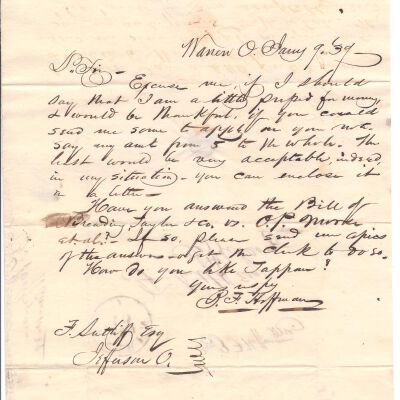 Warren O. Jany 9. '39
D. Sir - Excuse me, if I should
say that I am a little pressed for money
& would be thankful if you could
send me some to apply on your note
say any amt from 5 to the whole. The
last would be very acceptable, indeed,
in my situation - you can enclose it
in a letter -
Have you answered the Bill of
Taylor & Co. vs. O. P.
et al? - If so, please send me copies
of the answer - or get the Clerk to do so.
How do you like Tappan?
Yours resply
R. F. Hoffman
F. Sutliff Esq
Jefferson O.